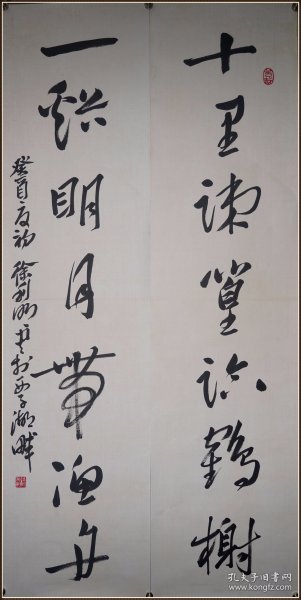 十里疎篁詠鶴榭
一谿明月帶漁舟
癸酉夏初 徐 書於西子湖畔
孔夫子旧书网
www.kongfz.com